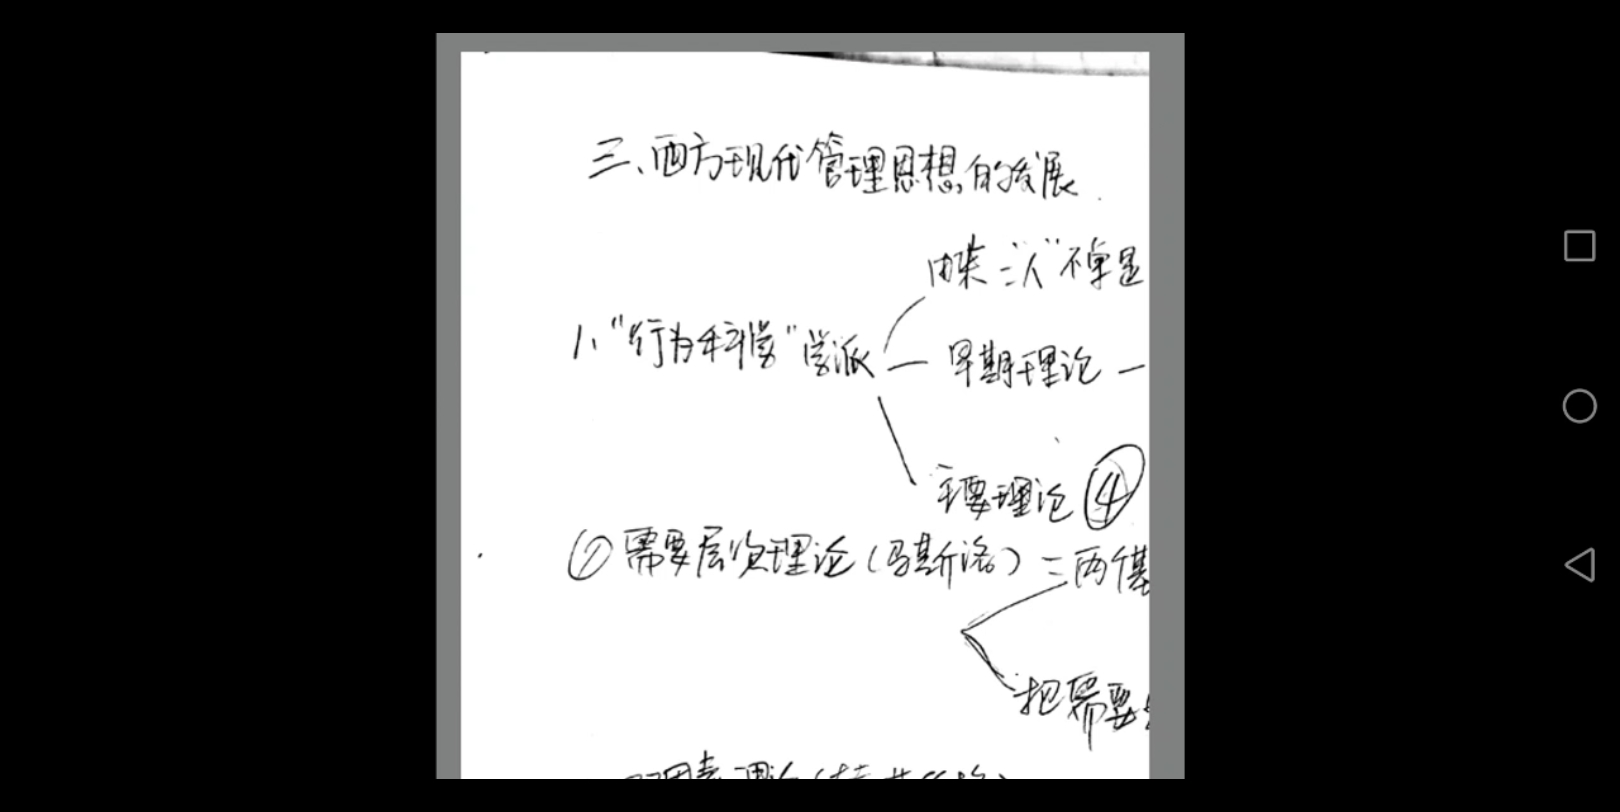 三、西方现代管理思想的发展.
由来:"人"不单是
1、"行为科学"学派
早期理论
主要理论④
①需要层次理论(马斯洛):两个基
把需要
因素理论(